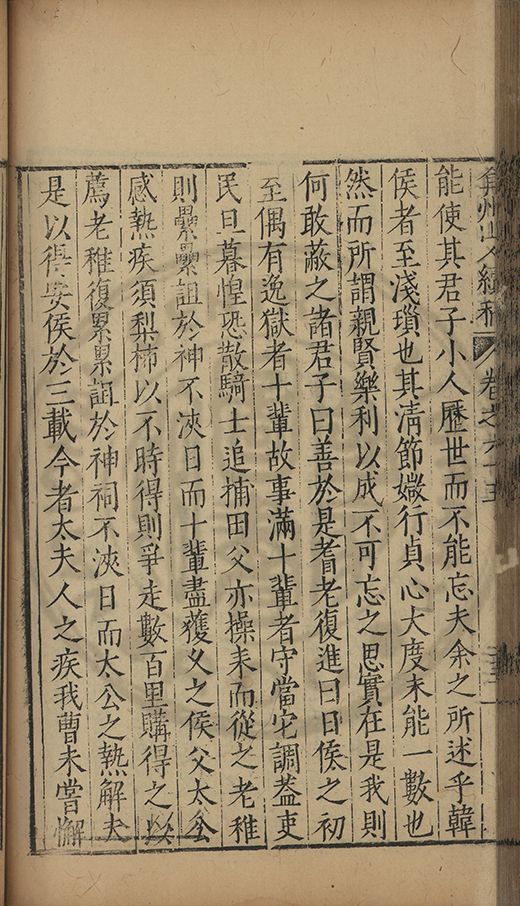 弇州山人續稿 卷之六十五
能使其君子小人歷世而不能忘夫余之所述乎韓
侯者至淺瑣也其淸節媺行貞心大度未能一數也
然而所謂親賢樂利以成不可忘之思實在是我則
何敢蔽之諸君子曰善於是耆老復進曰日侯之初
至偶有逸獄者十輩故事滿十輩者守當宅調葢吏
民旦暮惶恐散騎士追捕田父亦操耒而從之老稚
則纍纍詛於神不浹日而十輩盡獲乆之侯父太公
感熱疾須梨柿以不時得則爭走數百里購得之以
薦老稚復累累詛於神祠不浹日而太公之熱解夫
是以得安侯於三載今者太夫人之疾我曹未嘗懈